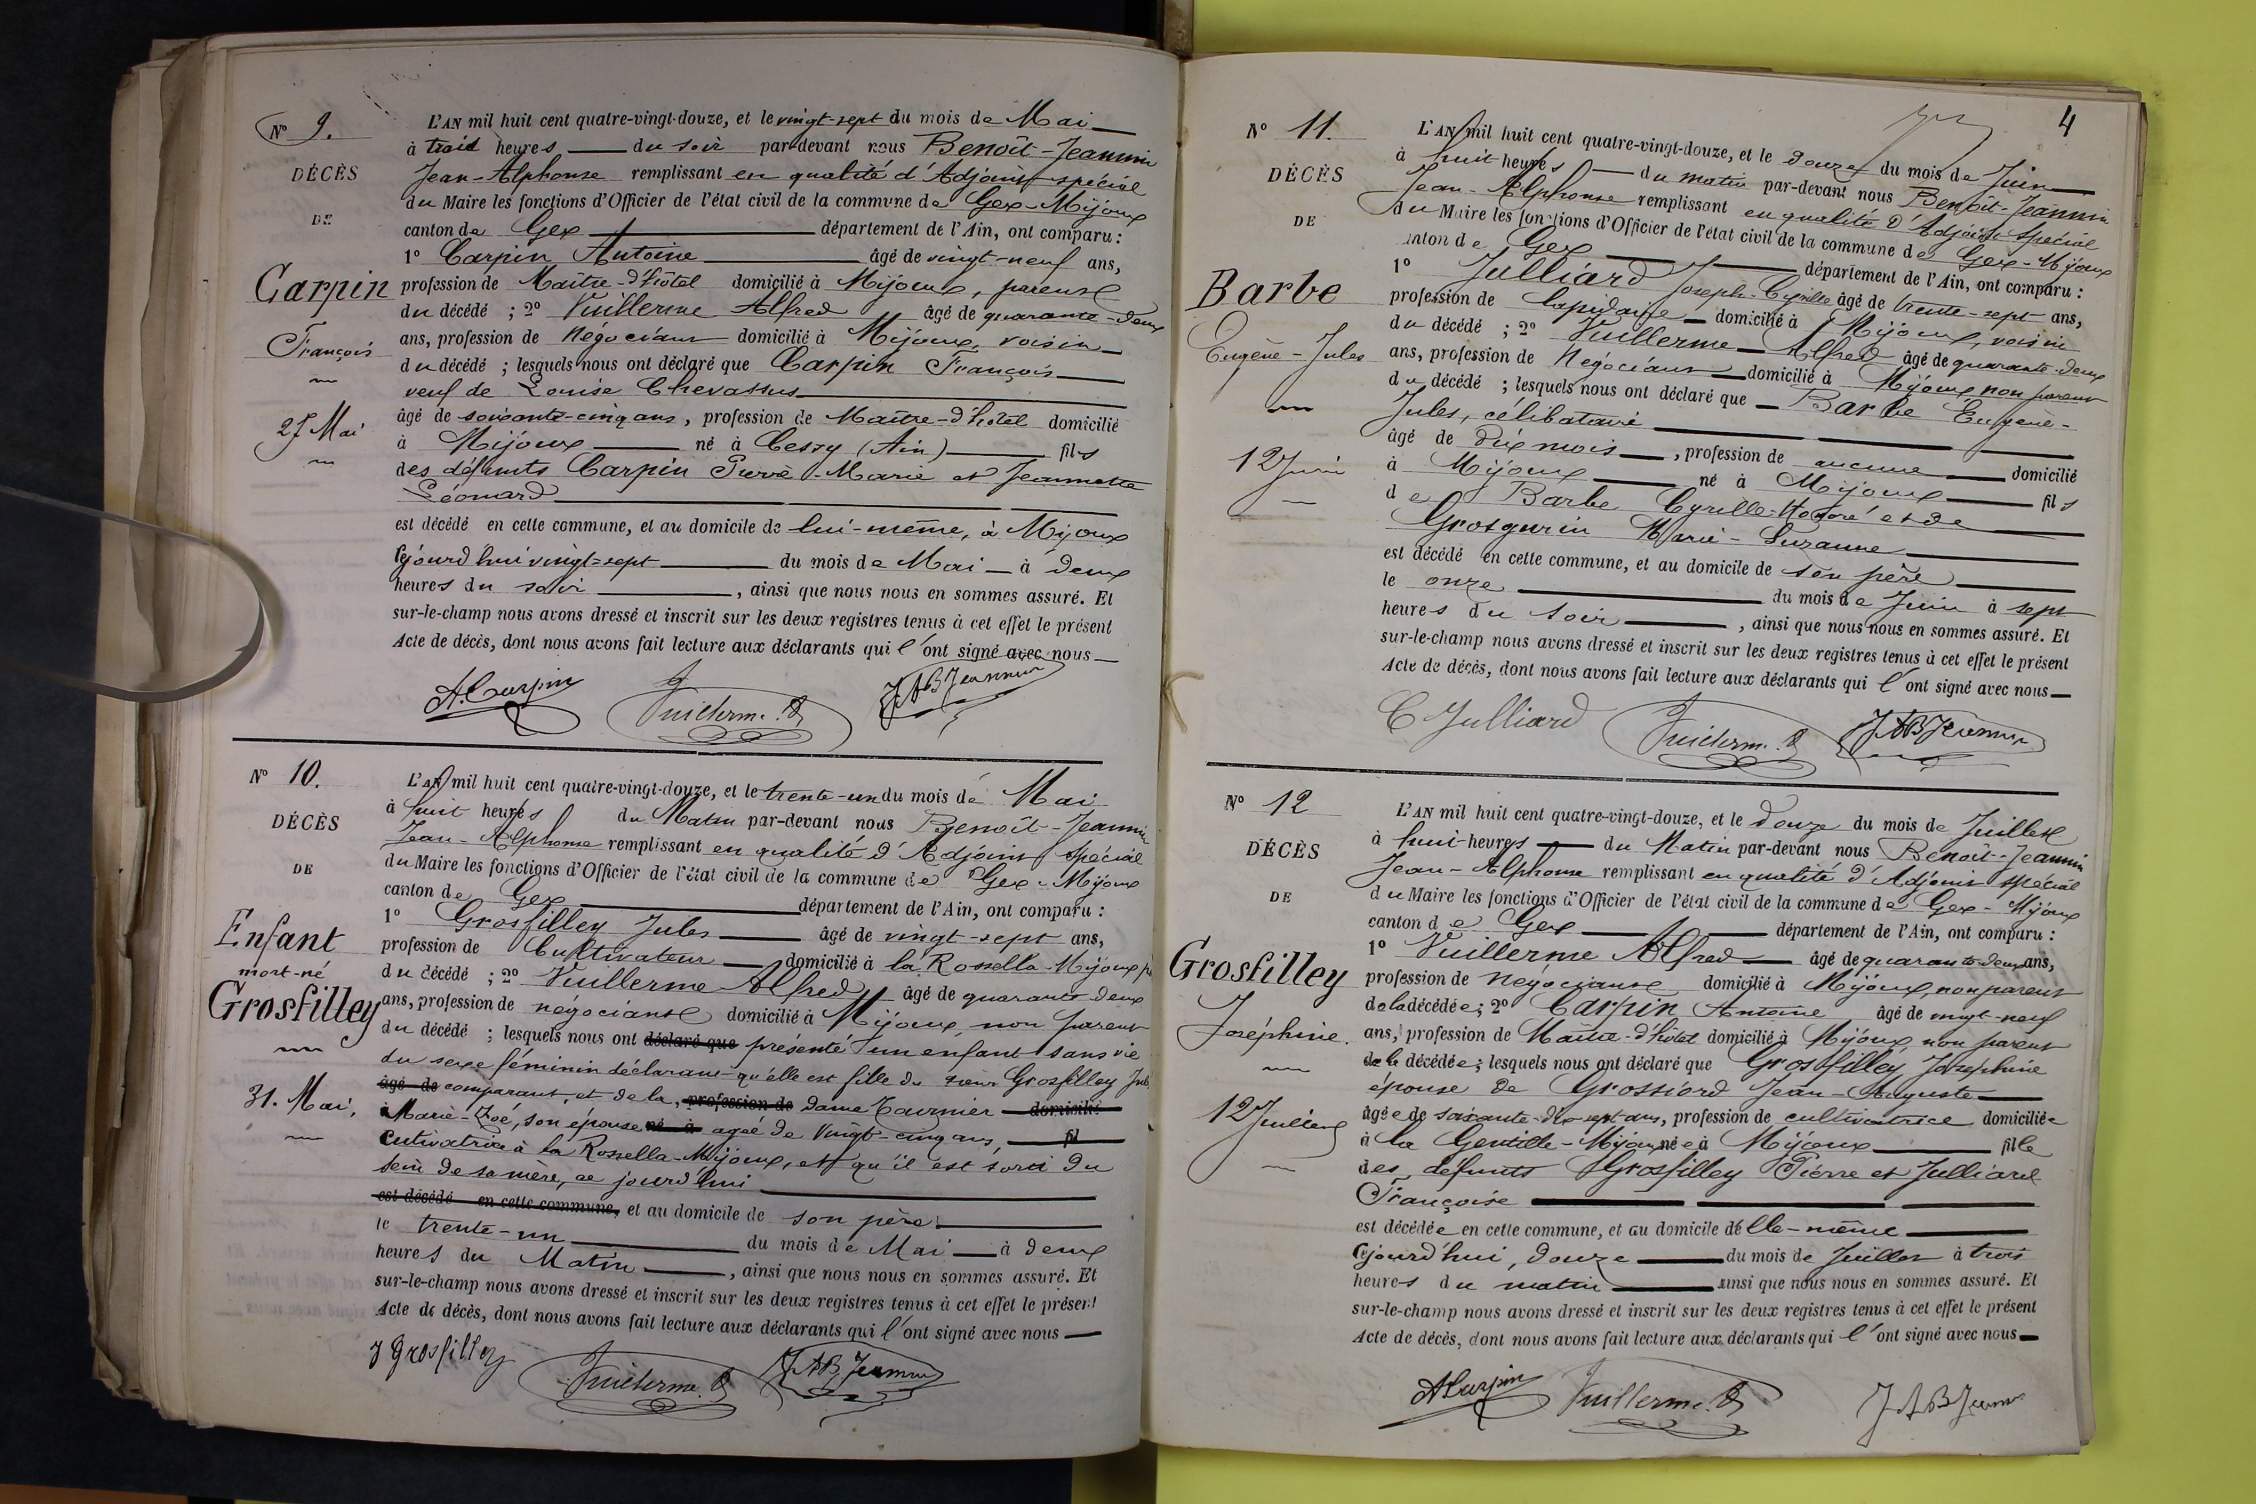 N° 9.
DÉCÈS
DE
Carpin
François
27 Mai
L'AN mil huit cent quatre-vingt-douze, et le vingt-sept du mois de Mai
à trois heures du soir par-devant nous Benoît-Jeannin
Jean-Alphonse remplissant en qualité d'Adjoint spécial
du Maire les fonctions d'Officier de l'état civil de la commune de Gex-Mijoux
canton de Gex département de l'Ain, ont comparu :
1° Carpin Antoine âgé de vingt-neuf ans,
profession de Maître-d'hôtel domicilié à Mijoux, parent
du décédé ; 2° Vuillerme Alfred âgé de quarante-deux
ans, profession de négociant domicilié à Mijoux, voisin
du décédé ; lesquels nous ont déclaré que Carpin François
veuf de Louise Chevassus
âgé de soixante-cinq ans, profession de Maître-d'hôtel domicilié
à Mijoux né à Cessy (Ain) fils
des défunts Carpin Pierre-Marie et Jeannette
Léonard
est décédé en cette commune, et au domicile de lui-même, à Mijoux
cejourd'hui vingt-sept du mois de Mai à deux
heures du soir, ainsi que nous nous en sommes assuré. Et
sur-le-champ nous avons dressé et inscrit sur les deux registres tenus à cet effet le présent
Acte de décès, dont nous avons fait lecture aux déclarants qui l'ont signé avec nous
A. Carpin Vuillerme A JAB Jeannin
N° 10.
DÉCÈS
DE
Enfant
mort-né
Grosfilley
31. Mai,
L'AN mil huit cent quatre-vingt-douze, et le trente-un du mois de Mai
à huit heures du Matin par-devant nous Benoît-Jeannin
Jean-Alphonse remplissant en qualité d'Adjoint spécial
du Maire les fonctions d'Officier de l'état civil de la commune de Gex-Mijoux
canton de Gex département de l'Ain, ont comparu :
1° Grosfilley Jules âgé de vingt-sept ans,
profession de Cultivateur domicilié à la Rossella-Mijoux
du décédé ; 2° Vuillerme Alfred âgé de quarante-deux
ans, profession de négociant domicilié à Mijoux, non parent
du décédé ; lesquels nous ont déclaré que présenté un enfant sans vie
du sexe féminin déclarant qu'elle est fille du sieur Grosfilley Jules
âgé de comparant, et de la, profession de dame Tournier domicilié
à Marie-Zoé, son épouse né à agée de Vingt-cinq ans, fil
cutivatrice à la Rossella-Mijoux, et qu'il est sorti du
sein de sa mère, ce jourd'hui
est décédé en cette commune, et au domicile de son père
le trente-un du mois de Mai à deux
heures du Matin, ainsi que nous nous en sommes assuré. Et
sur-le-champ nous avons dressé et inscrit sur les deux registres tenus à cet effet le présent
Acte de décès, dont nous avons fait lecture aux déclarants qui l'ont signé avec nous
J Grosfilley Vuillerme A JAB Jeannin
4
N° 11.
DÉCÈS
DE
Barbe
Eugène-Jules
12 Juin
L'AN mil huit cent quatre-vingt-douze, et le douze du mois de Juin
à huit heures du matin par-devant nous Benoît-Jeannin
Jean-Alphonse remplissant en qualité d'Adjoint spécial
du Maire les fonctions d'Officier de l'état civil de la commune de Gex-Mijoux
canton de Gex département de l'Ain, ont comparu :
1° Julliard Joseph-Cyrille âgé de trente-sept ans,
profession de lapidaire domicilié à Mijoux, voisin
du décédé ; 2° Vuillerme Alfred âgé de quarante-deux
ans, profession de Négociant domicilié à Mijoux, non parent
du décédé ; lesquels nous ont déclaré que Barbe Eugène-
Jules, célibataire
âgé de dix mois, profession de aucune domicilié
à Mijoux né à Mijoux fils
de Barbe Cyrille-Honoré et de
Grosgurin Marie-Suzanne
est décédé en cette commune, et au domicile de son père
le onze du mois de Juin à sept
heures du soir, ainsi que nous nous en sommes assuré. Et
sur-le-champ nous avons dressé et inscrit sur les deux registres tenus à cet effet le présent
Acte de décès, dont nous avons fait lecture aux déclarants qui l'ont signé avec nous
C Julliard Vuillerme A JAB Jeannin
N° 12
DÉCÈS
DE
Grosfilley
Joséphine.
12 Juillet
L'AN mil huit cent quatre-vingt-douze, et le douze du mois de Juillet
à huit heures du Matin par-devant nous Benoît-Jeannin
Jean-Alphonse remplissant en qualité d'Adjoint spécial
du Maire les fonctions d'Officier de l'état civil de la commune de Gex-Mijoux
canton de Gex département de l'Ain, ont comparu :
1° Vuillerme Alfred âgé de quarante-deux ans,
profession de négociant domicilié à Mijoux, non parent
de la décédée ; 2° Carpin Antoine âgé de vingt-neuf
ans, profession de Maître-d'hôtel domicilié à Mijoux, non parent
de la décédée ; lesquels nous ont déclaré que Grosfilley Joséphine
épouse de Grossiord Jean-Auguste
âgée de soixante-dix-sept ans, profession de cultivatrice domiciliée
à la Gentille-Mijoux née à Mijoux fille
des défunts Grosfilley Pierre et Julliard
Françoise
est décédée en cette commune, et au domicile d'elle-même
cejourd'hui, douze du mois de Juillet à trois
heures du matin ainsi que nous nous en sommes assuré. Et
sur-le-champ nous avons dressé et inscrit sur les deux registres tenus à cet effet le présent
Acte de décès, dont nous avons fait lecture aux déclarants qui l'ont signé avec nous
A Carpin Vuillerme A JAB Jeannin